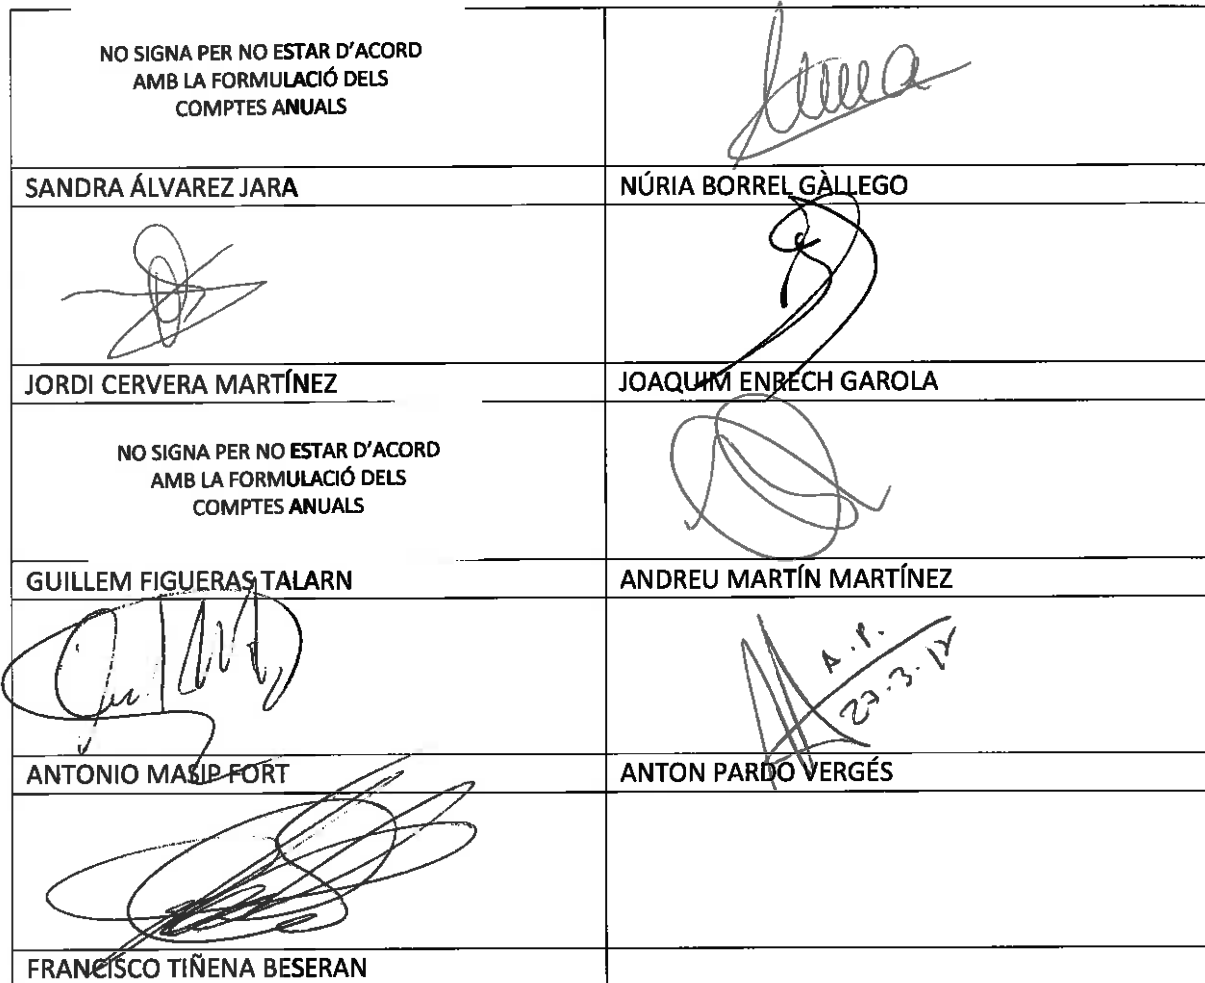 NO SIGNA PER NO ESTAR D'ACORD
AMB LA FORMULACIÓ DELS
COMPTES ANUALS
SANDRA ÁLVAREZ JARA
NÚRIA BORREL GÀLLEGO
JORDI CERVERA MARTÍNEZ
JOAQUIM ENRECH GAROLA
NO SIGNA PER NO ESTAR D'ACORD
AMB LA FORMULACIÓ DELS
COMPTES ANUALS
GUILLEM FIGUERAS TALARN
ANDREU MARTÍN MARTÍNEZ
A.P.
27.3.17
ANTONIO MASIP FORT
ANTON PARDO VERGÉS
FRANCISCO TIÑENA BESERAN